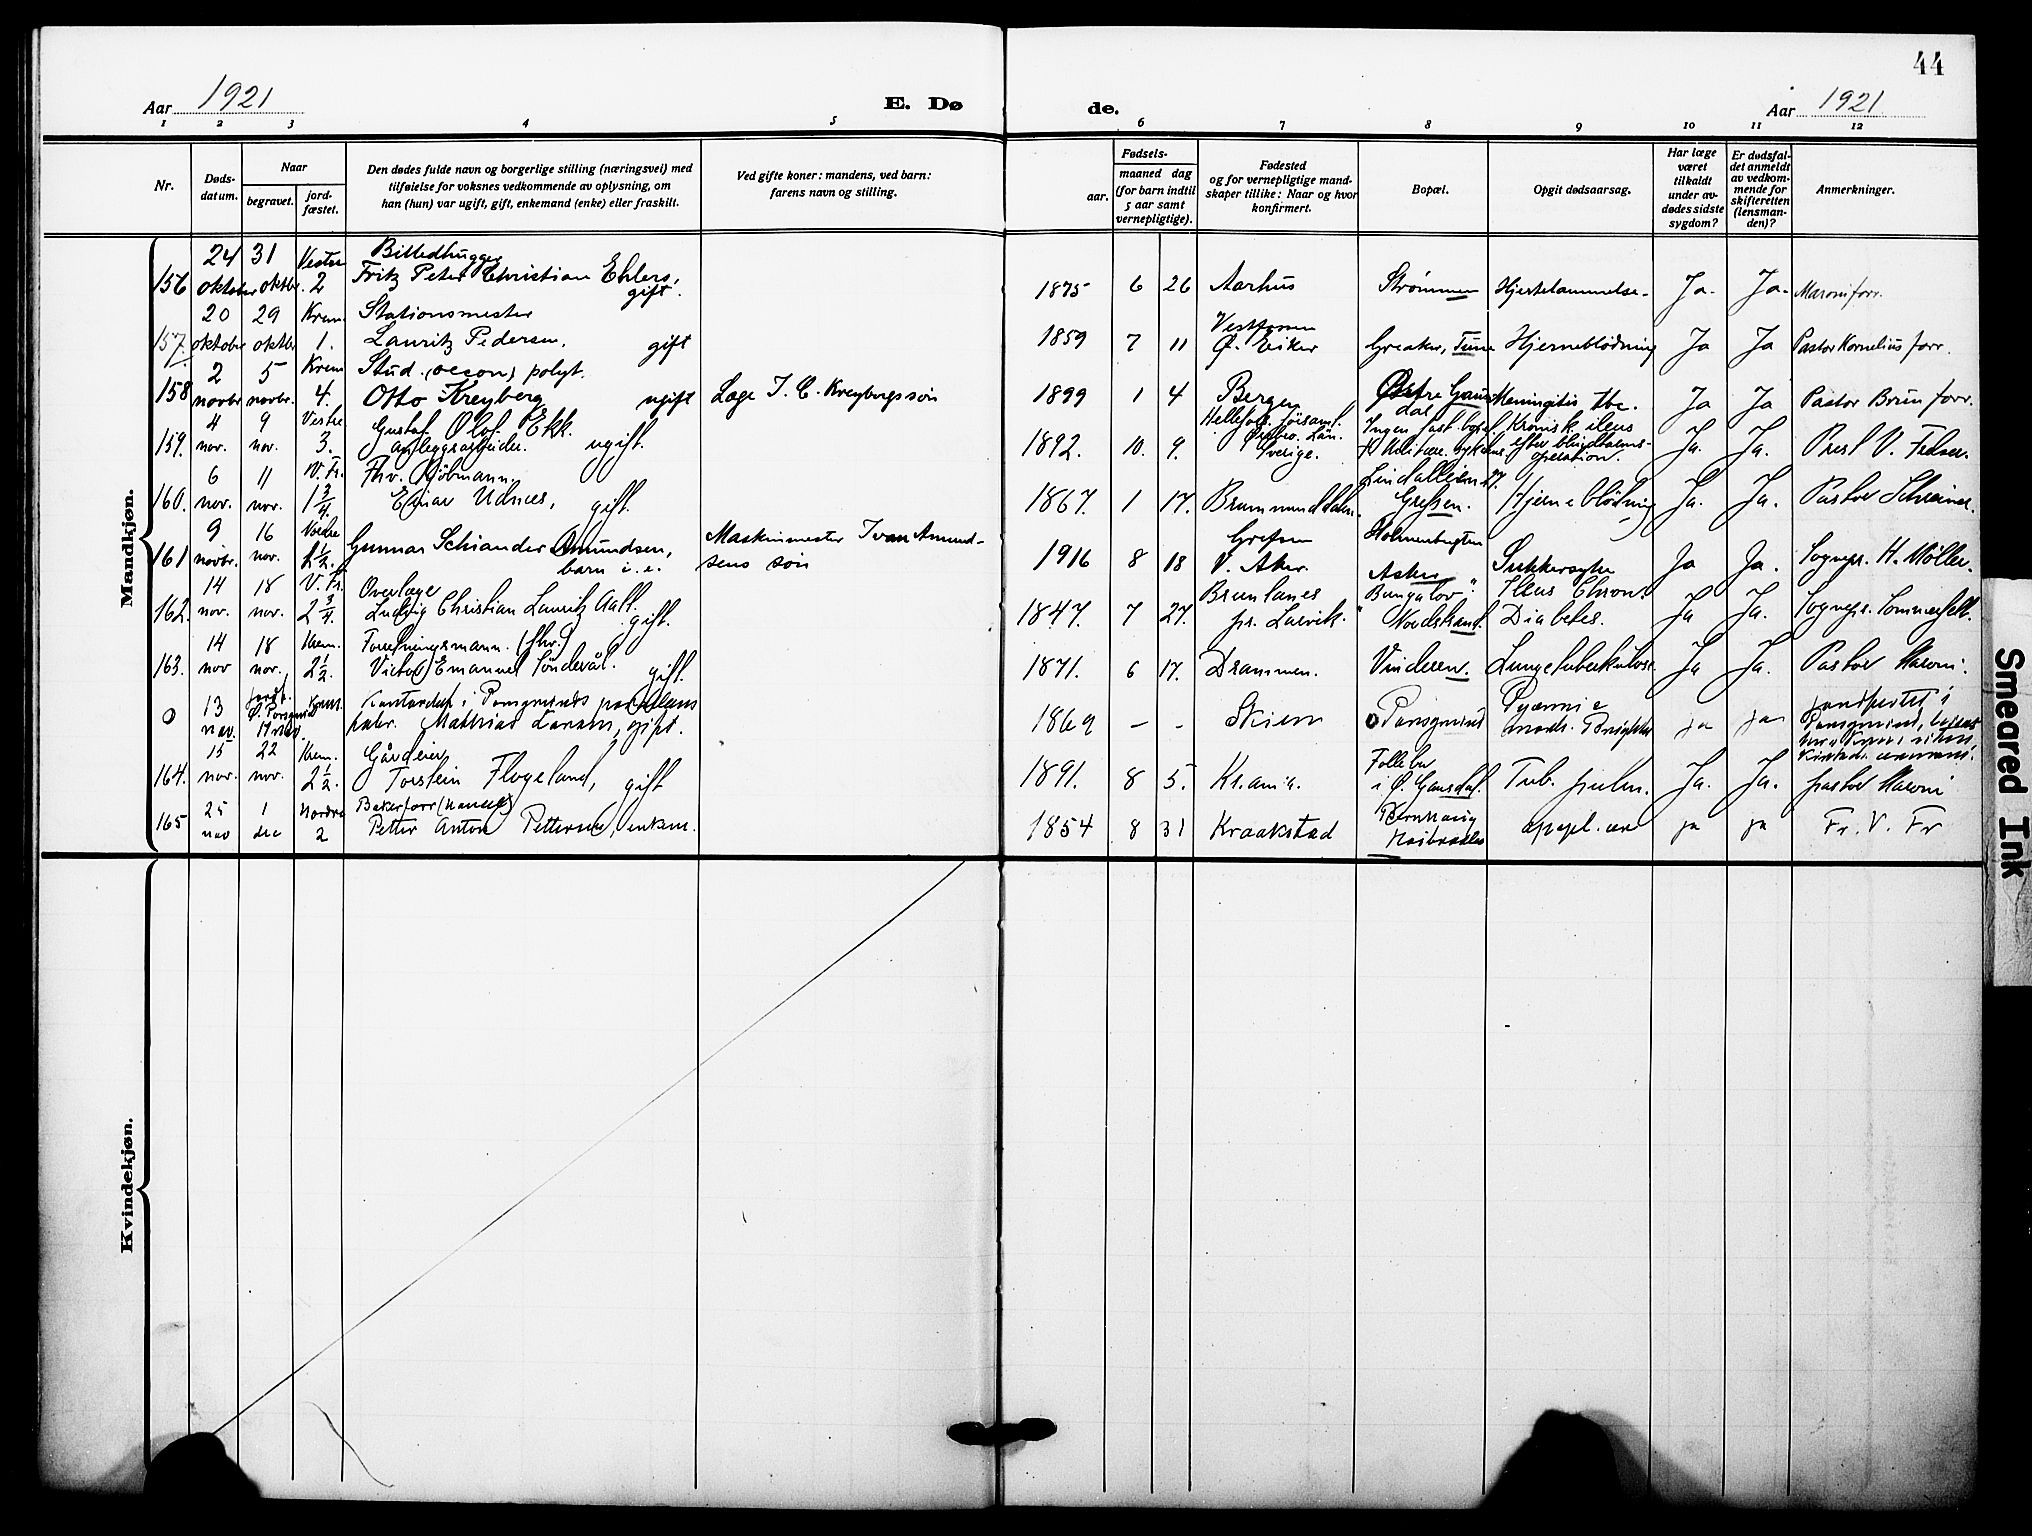 44
Aar 1921
E. Dø
de.
Aar 1921
1 2 3 4 5 6 7 8 9 10 11 12
Nr.
Døds-
datum.
Naar
begravet.
jord-
fæstet.
Den dødes fulde navn og borgerlige stilling (næringsvei) med
tilføielse for voksnes vedkommende av oplysning, om
han (hun) var ugift, gift, enkemand (enke) eller fraskilt.
Ved gifte koner: mandens, ved barn:
farens navn og stilling.
Fødsels-
aar.
maaned dag
(for barn indtil
5 aar samt
vernepligtige).
Fødested
og for vernepligtige mand-
skaper tillike: Naar og hvor
konfirmert.
Bopæl.
Opgit dødsaarsag.
Har læge
været
tilkaldt
under av-
dødes sidste
sygdom?
Er dødsfal-
det anmeldt
av vedkom-
mende for
skifteretten
(lensman-
den)?
Anmerkninger.
Mandkjøn.
24 31 Vestre Billedhugger
156 oktober oktbr. 2 Fritz Peter Christian Ehlers, gift. 1875 6 26 Aarhus Strømmen Hjertelammelse. Ja. Ja. Maroni forr.
20 29 Krem. Stationsmester Vestfossen
157. oktober oktbr 1. Lauritz Pedersen. gift 1859 7 11 Ø. Eiker Greaker, Tune Hjerneblödning Ja Ja Pastor Kornelius forr.
2 5 Krem Stud. (oecon) polyt.
158 novbr novbr. 4. Otto Kreyberg ugift Læge I. C. Kreybergs søn 1899 1 4 Bergen Østre Gausdal Meningitis tbc. Ja Ja Pastor Brun forr.
4 9 Vestre Gustaf Olof Ekk. Ingen fast bopæl Kronisk ileus
159. nov. nov. 3. Anleggsarbeider. ugift. 1892. 10. 9. Örebro Län. Sverige. efter blindtarms-operation. Ja. Ja.
6 11 V. Fr. Fhv. Kjöbmann. Lindalleen 27.
160. nov. nov. 1 3/4. Einar Udnes, gift. 1867. 1 17. Brummunddalen. Grefsen. Hjerneblödning Ja. Ja. Pastor Schreiner.
9 16 Vestre Maskinmester Ivar Amund- Grefsen Holmenbugten
161 novbr. nov. 1 1/2. Gunnar Schiander Amundsen, barn i. e. sens søn 1916 8 18 V. Aker. Asker Sukkersyke Ja Ja. Sognepr. H. Møller.
14 18 V. Fr. Overlæge Brunlanes Bungalov Ileus Chron.
162. nov. nov. 2 3/4. Ludvig Christian Lauritz Aall. gift. 1847. 7 27. pr. Larvik. Nordstrand. Diabetes. Ja Ja. Sognepr. Sommerfelt.
14 18 Krem. Forretningsmann. (fhv.)
163. nov nov. 2 1/2. Victor Emanuel Sönderål. gift. 1871. 6 17. Drammen. Vinderen. Lungetuberkulose. Ja Ja. Pastor Maroni.
13 Krem. i Porsgrunds porselæns
0 nov. 17 nov. fabr. Mathias Larsen, gift. 1869 - - Skien Porsgrund Pyæmi ja ja jordfæstet i Porsgrund,
15 22 Krem. Gårdeier Follebu
164. nov. nov. 2 1/2. Torstein Flogeland, gift 1891. 8 5. Kr.ania. i Ø. Gausdal. Tub. pulm. Ja. Ja. pastor Maroni
25 1 Nordre Bakerforr
165 nov dec 2 Petter Anton Pettersen, enkem. 1854 8 31 Kraakstad apopl. cer ja ja Fr. V. Fr
Kvindekjøn.
Smeared Ink